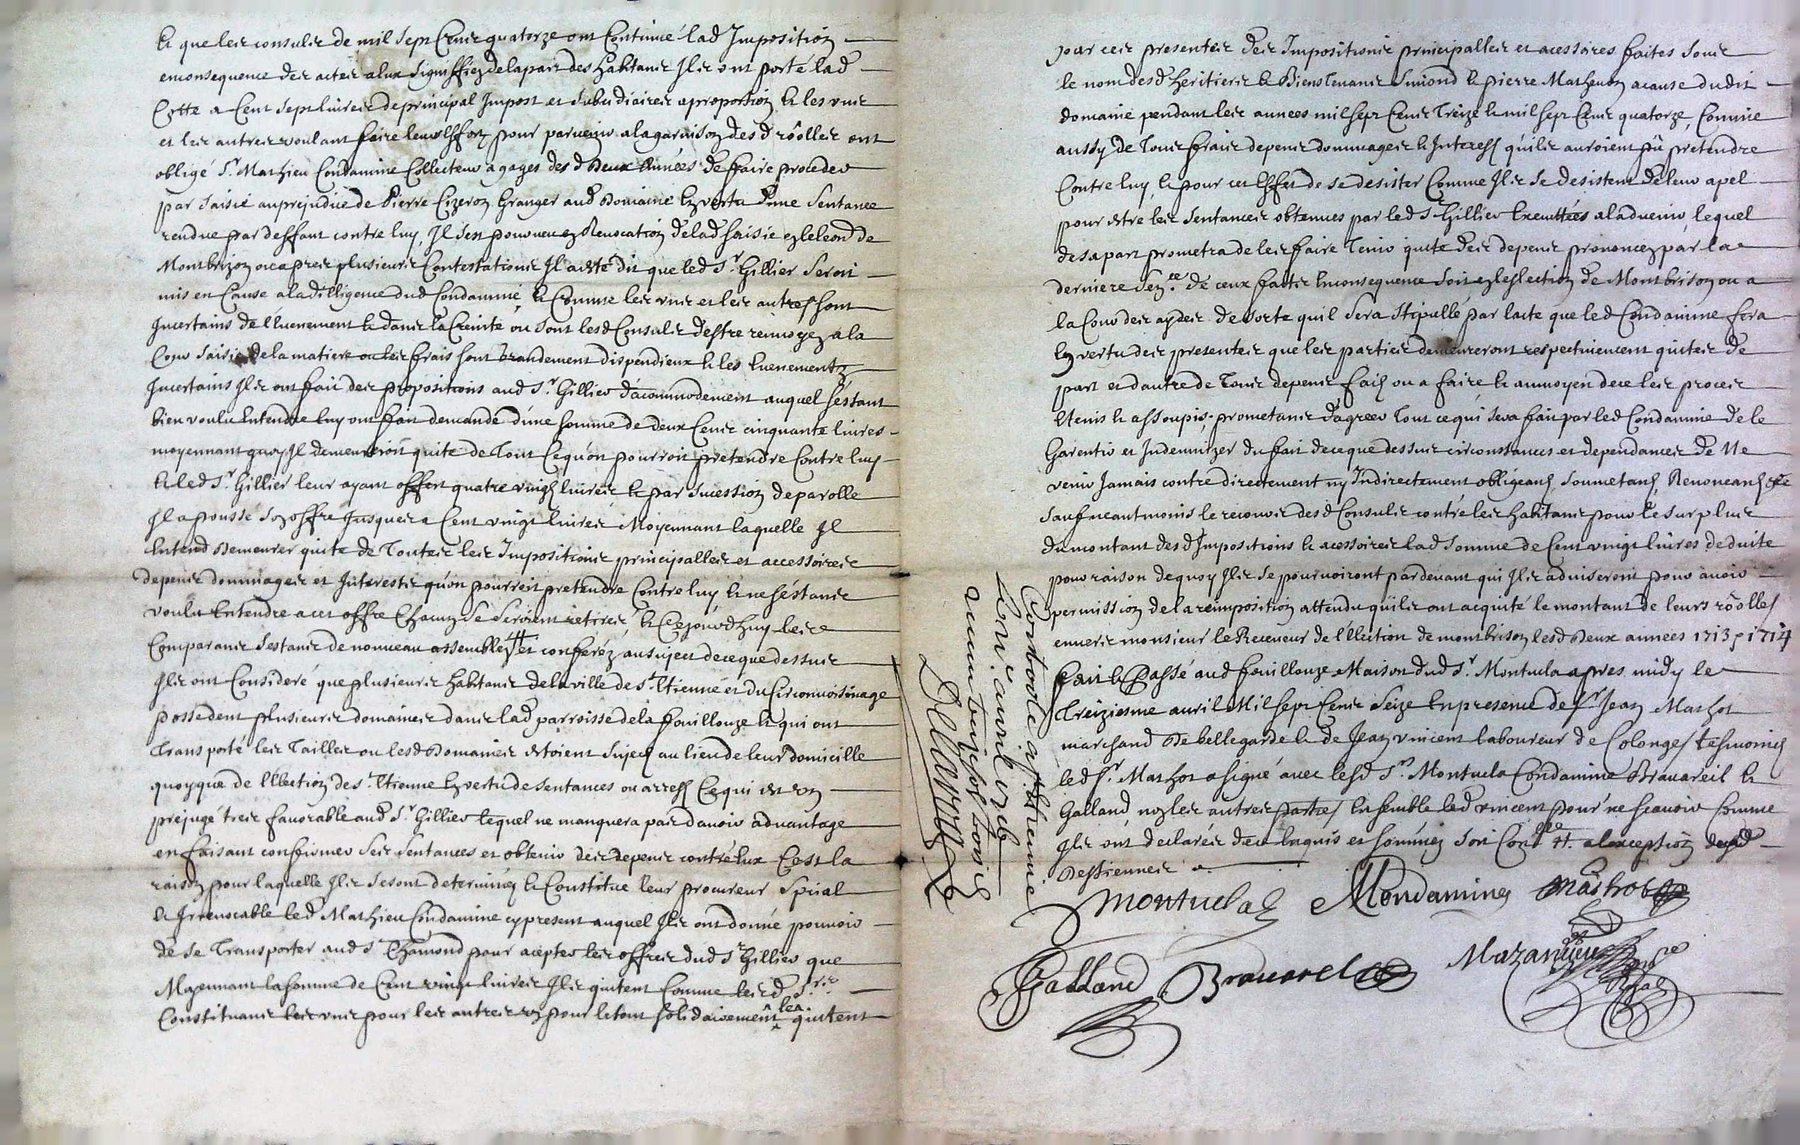 & que les consulz de mil sept Cens quatorze ont Continué lad Imposition
enconsequence des actes a lux signiffiez delapart des habitans Ilz ont porté lad
Cotte a Cent sept livres de principal Impost et subsidiaires aproportion & les uns
et les autres voulant faire leur effort pour parvenir alagarnison desd rôolles ont
obligé Sr. Mathieu Condamine Collecteur a gages desd deux Années de ffaire proceder
par saisie auprejudice de Pierre Cizeron Granger aud Domaine En vertu d'une Sentance
rendue par deffaut contre luy, Il s'est pourveu en Revocation de lad saisie en
Montbrizon ou apres plusieurs Contestations Il a esté dit que led Sr. Gillier seroit
mis en Cause aladilligence dud Condamine & Comme les uns et les autres sont
Incertains de l'Evenement & dans la Creinte ou sont lesd Consulz d'estre renvoyez a la
Cour saisie de la matiere ou les frais sont grandement dispendieux & les Evenements
Incertains Ilz ont fait des propositions aud Sr. Gillier d'acommodement auquel s'estant
bien voulu Entendre luy ont fait demande d'une somme de deux Cens cinquante livres
moyennant quoy Il demeureroit quite de Tout Cequ'on pourroit pretendre Contre luy
& led Sr. Gillier leur ayant offert quatre vingts livres & par sucession de parolle
Il a poussé son offre jusques a Cent vingt livres Moyennant laquelle Il
Entend Demeurer quite de Toutes les Impositions principalles et accessoires
depens dommages et Interestz qu'on pourroit pretendre Contre luy & ne s'estans
voulu Entendre a cet offre Chacun se seroient retirés, & Cejourd'huy les
Comparans s'estans de nouveau assemblés # et conferéz au sujet de ceque dessus
Ilz ont Consideré que plusieurs habitans de la ville de St. Etienne et du Circonvoisinage
possedent plusieurs domaines dans lad parroisse de la fouillouze & qui ont
Transporté les Tailles ou lesd Domaines estoient sujetz au lieu de leur domicille
quoyque de l'Election de St. Etienne En vertu de sentances ou arrests Cequi est un
prejugé tres favorable aud Sr. Gillier lequel ne manquera pas d'avoir advantage
en faisant confirmer ses sentances et obtenir des depens contre lux C'est la
raison pour laquelle Ilz seront determinéz & Constitue leur procureur special
& Irrevocable led Mathieu Condamine cy present auquel Ilz ont donné pouvoir
de se Transporter aud St. Chamond pour acepter les offres dud Sr. Gillier que
Moyennant la somme de Cent vingt livres Ilz quitent Comme lesd Srs.
Constituans les uns pour les autres un pour le tout solidairement les quitent
pour ces presentes des Impositions principalles et acessoires faites sous
le nom desd heritiers & Bienstenans Simond & pierre Mathevon acause dudit
domaine pendant les années mil sept Cens Treize & mil sept Cens quatorze, Comme
aussy de Tous fraix depens dommages & Interestz qu'ilz auroient pû pretendre
Contre luy & pour cet Effet de se desister Comme Ilz se desistent de leur apel
pour estre les sentances obtenues par led Sr. Gillier Executtées aladvenir lequel
desapart prometra de les faire Tenir quite des depens prononcez par la
derniere Sence. de ceux faits Enconsequence soit en l'eslection de Montbrison ou a
la Cour des aydes de sorte quil sera stipullé par l'acte que led Condamine fera
En vertu des presentes que les parties demeureront respectivement quites de
part et d'autre de Tous depens faits ou a faire & aumoyen dece les proces
Etenis & assoupis, prometans d'agreer Tout ce qui sera fait par led Condamine de le
Garentir et Indemnizer du fait deceque dessus circonstances et dependances de Ne
venir Jamais contre directement ny Indirectement obligeans soumetans Renonceans &c
Sauf neantmoins le recouvrs desd Consulz contre les habitans pour le surplus
du montant desd Impositions & acessoires lad somme de Cent vingt livres deduite
pour raison dequoy Ilz se pourvoiront pardevant qui Ilz adviseront pour avoir
permission de la reimposition attendu qu'ilz ont acquité le montant de leurs rôolles
envers monsieur le Receveur de l'Election de montbrison lesd deux années 1713 & 1714
Fait & Passé aud fouillouze Maison dud Sr. Montuela apres midy le
Treiziesme avril Mil sept Cens seize En presence de Sr. Jean Mathot
marchand de bellegarde & de Jean vincent laboureur de Colonges tesmoins
led Sr. Mathot a signé avec lesd Srs. Montuela Condamine Brauareil &
Galland non les autres parties Ensemble led vincent pour ne scavoir Comme
Ilz ont declarés de ce Enquis et sommez # alexception
Dessiennes
Controole a st. heume
Le xv. avril 1716
Delarue
Montuela Mondamines Mathot
Galland Brauarel Mazan